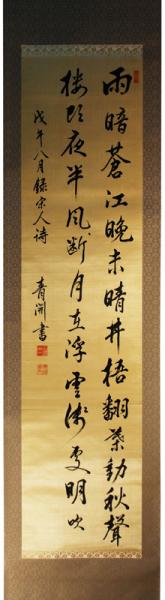 雨暗蒼江晚未晴井梧翻葉動秋聲
楼頭夜半風断月在浮雲浅處明 吹
戊午八月録宋人詩 青淵書